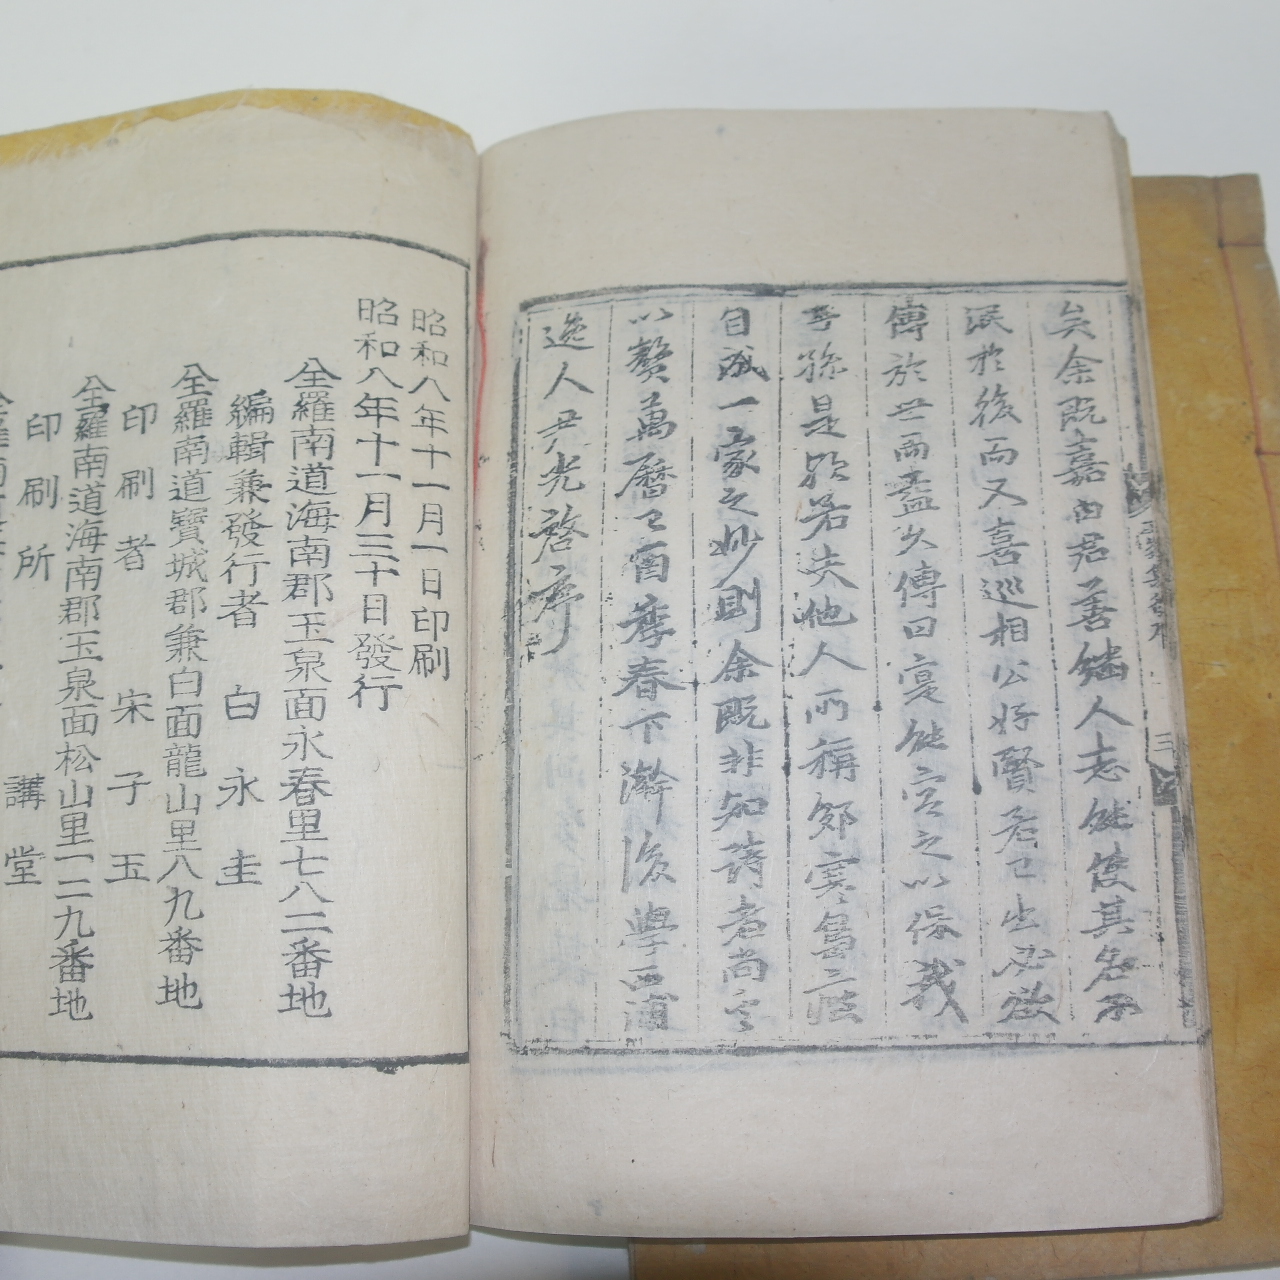 矣余既嘉白君善繼人志能使其名不
泯於後而又喜巡相公好賢若已出必欲
傳於世而盡久傳曰寔能容之以保我
子孫是以若夫他人所稱郊寒島二陸
自成一家之妙則余既非知詩者尚
以贅萬曆己酉季春下澣後學西浦
逸人尹光啓序
昭和八年十一月一日印刷
昭和八年十一月三十日發行
全羅南道海南郡玉泉面永春里七八二番地
編輯兼發行者 白永圭
全羅南道寶城郡兼白面龍山里八九番地
印刷者 宋子玉
全羅南道海南郡玉泉面松山里一二九番地
印刷所 講堂